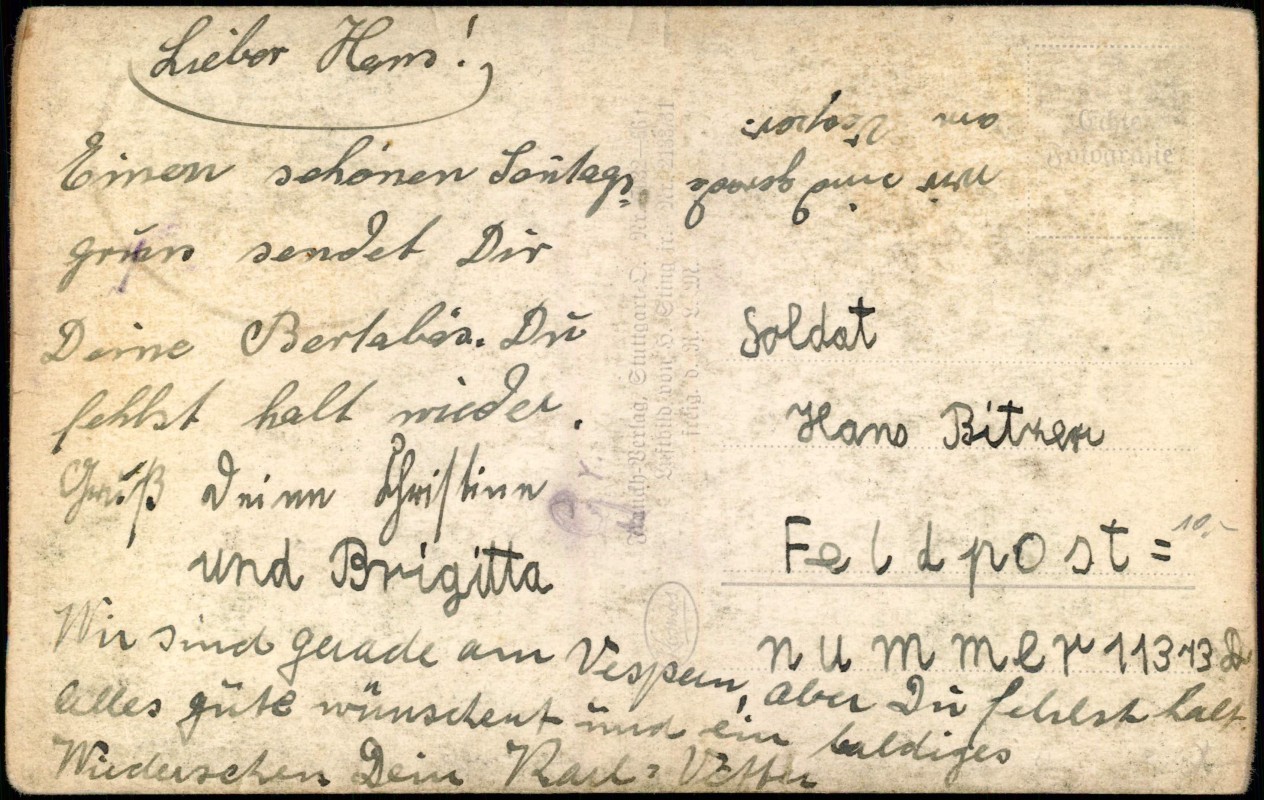 Lieber Hans!
Einen schönen Sontags=
gruss sendet Dir
Deine Bertabäs. Du
fehlst halt wieder.
Gruß Deine Christine
und Brigitta
Wir sind gerade am Vespern, aber Du fehlst halt.
Alles gute wünschent und ein baldiges
Wiedersehen Dein Karl=Vetter
wir sind gerade
am Vespern
Echte
Fotografie
Soldat
Hans Bitzer
Feldpost=
10,-
nummer 11313